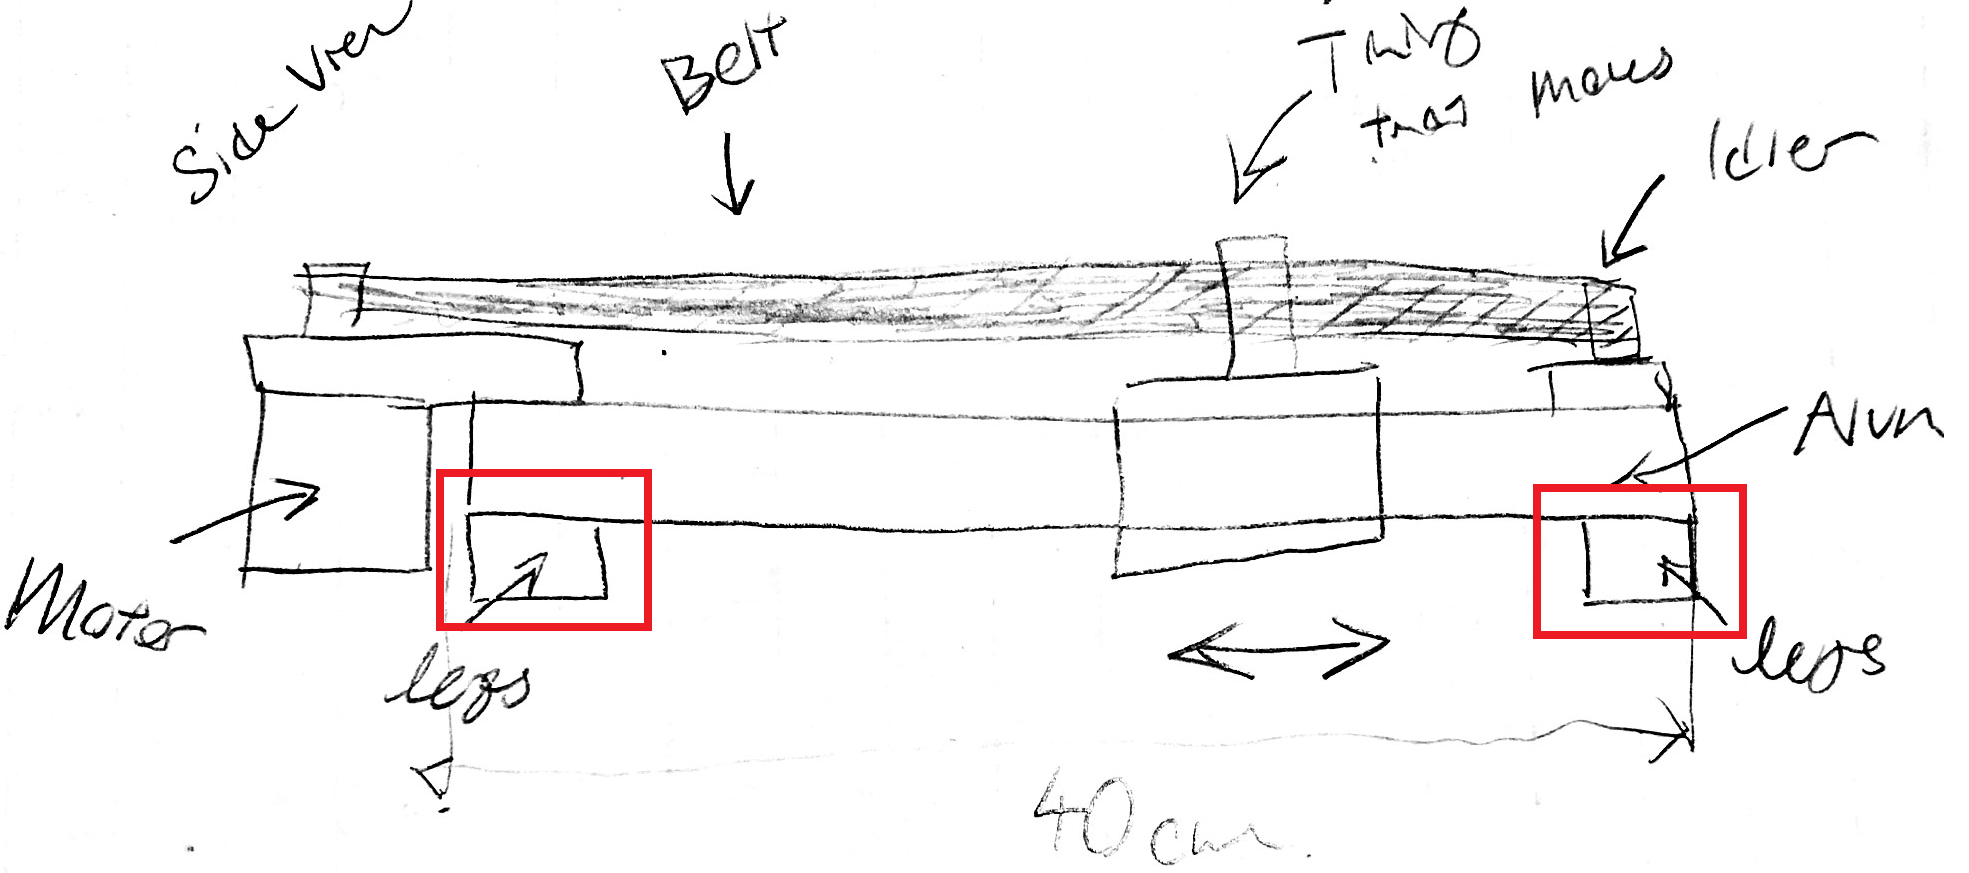 Side View
Belt
Thing
that moves
Idler
Alum
Motor
legs
legs
40cm